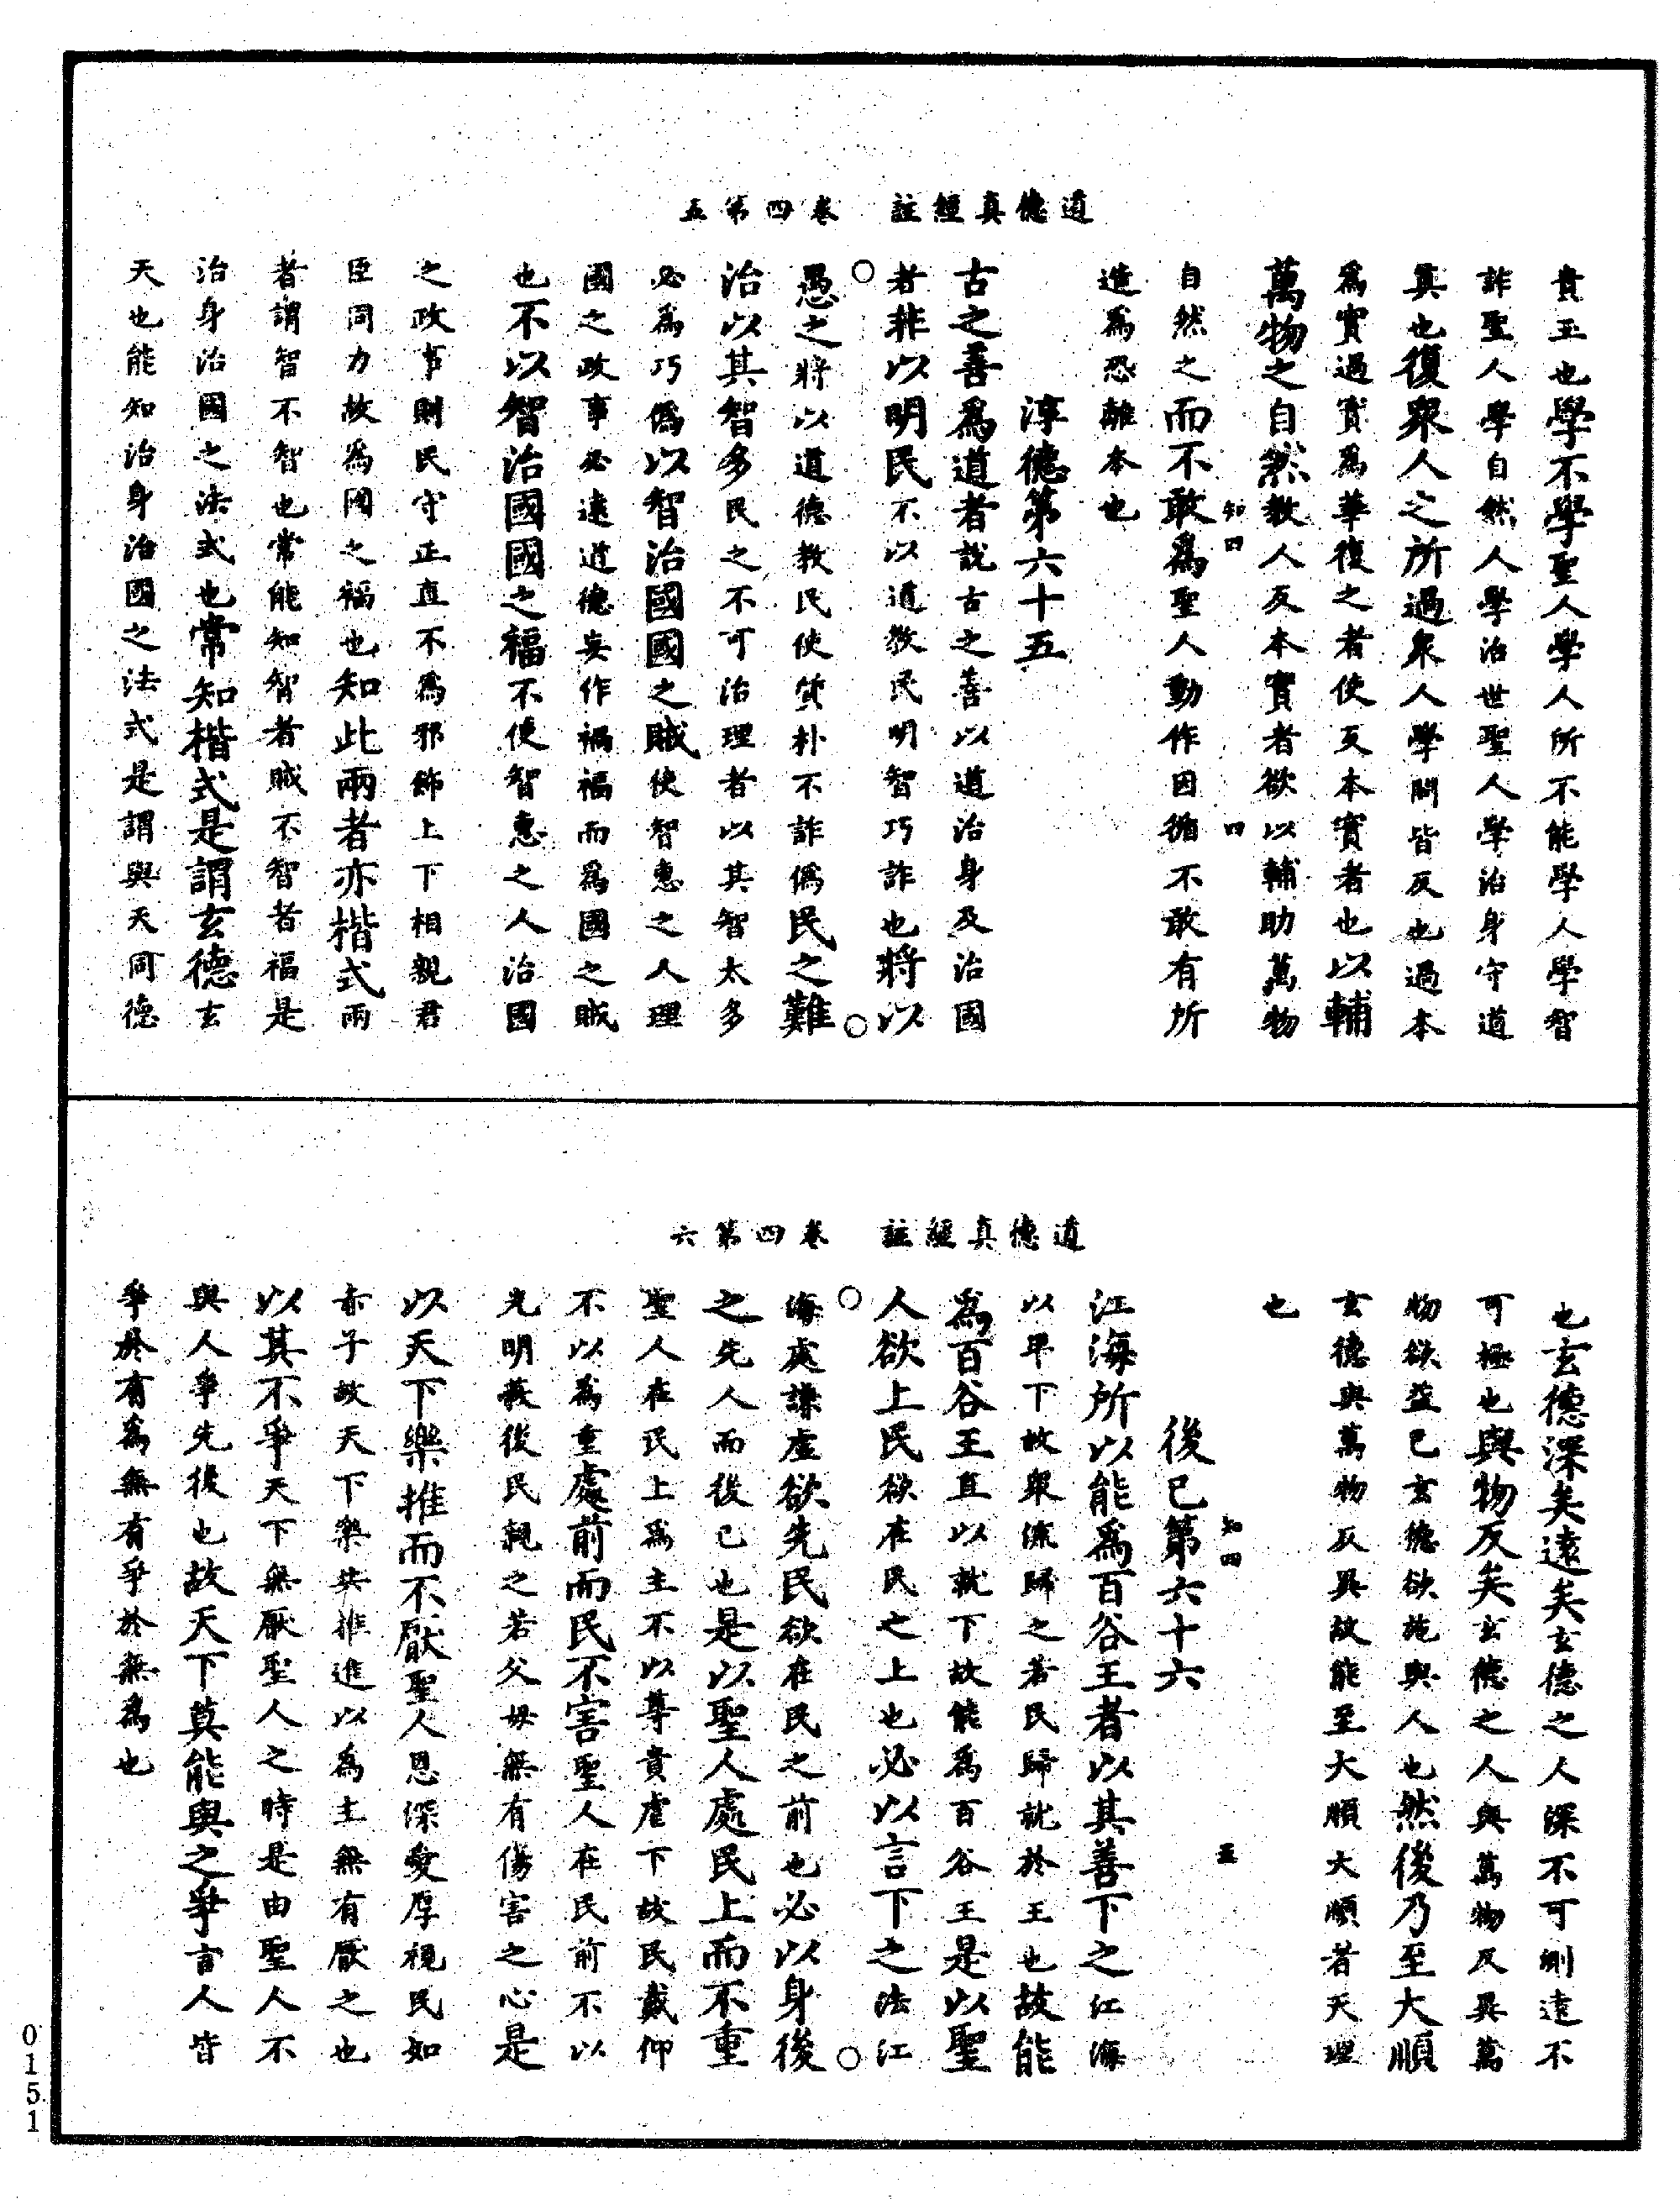 道德真經註　卷四第五
貴玉也學不學聖人學人所不能學人學智
詐聖人學自然人學治世聖人學治身守道
真也復衆人之所過衆人學問皆反也過本
爲實過實爲華復之者使反本實者也以輔
萬物之自然教人反本實者欲以輔助萬物
自然之而不敢爲聖人動作因循不敢有所
知四　四
造爲恐離本也
淳德第六十五
古之善爲道者說古之善以道治身及治國
者非以明民不以道教民明智巧詐也將以
愚之將以道德教民使質朴不詐僞民之難
治以其智多民之不可治理者以其智太多
必爲巧僞以智治國國之賊使智惠之人理
國之政事必遠道德妄作禍福而爲國之賊
也不以智治國國之福不使智惠之人治國
之政事則民守正直不爲邪飾上下相親君
臣同力故爲國之福也知此兩者亦楷式兩
者謂智不智也常能知智者賊不智者福是
治身治國之法式也常知楷式是謂玄德玄
天也能知治身治國之法式是謂與天同德
道德真經註　卷四第六
也玄德深矣遠矣玄德之人深不可測遠不
可極也與物反矣玄德之人與萬物反異萬
物欲益己玄德欲施與人也然後乃至大順
玄德與萬物反異故能至大順大順者天理
也
知四　五
後己第六十六
江海所以能爲百谷王者以其善下之江海
以卑下故衆流歸之若民歸就於王也故能
爲百谷王直以就下故能爲百谷王是以聖
人欲上民欲在民之上也必以言下之法江
海處謙虛欲先民欲在民之前也必以身後
之先人而後己也是以聖人處民上而不重
聖人在民上爲主不以尊貴虐下故民戴仰
不以爲重處前而民不害聖人在民前不以
光明蔽後民親之若父母無有傷害之心是
以天下樂推而不厭聖人恩深愛厚視民如
赤子故天下樂共推進以爲主無有厭之也
以其不爭天下無厭聖人之時是由聖人不
與人爭先後也故天下莫能與之爭言人皆
爭於有爲無有爭於無爲也
0151